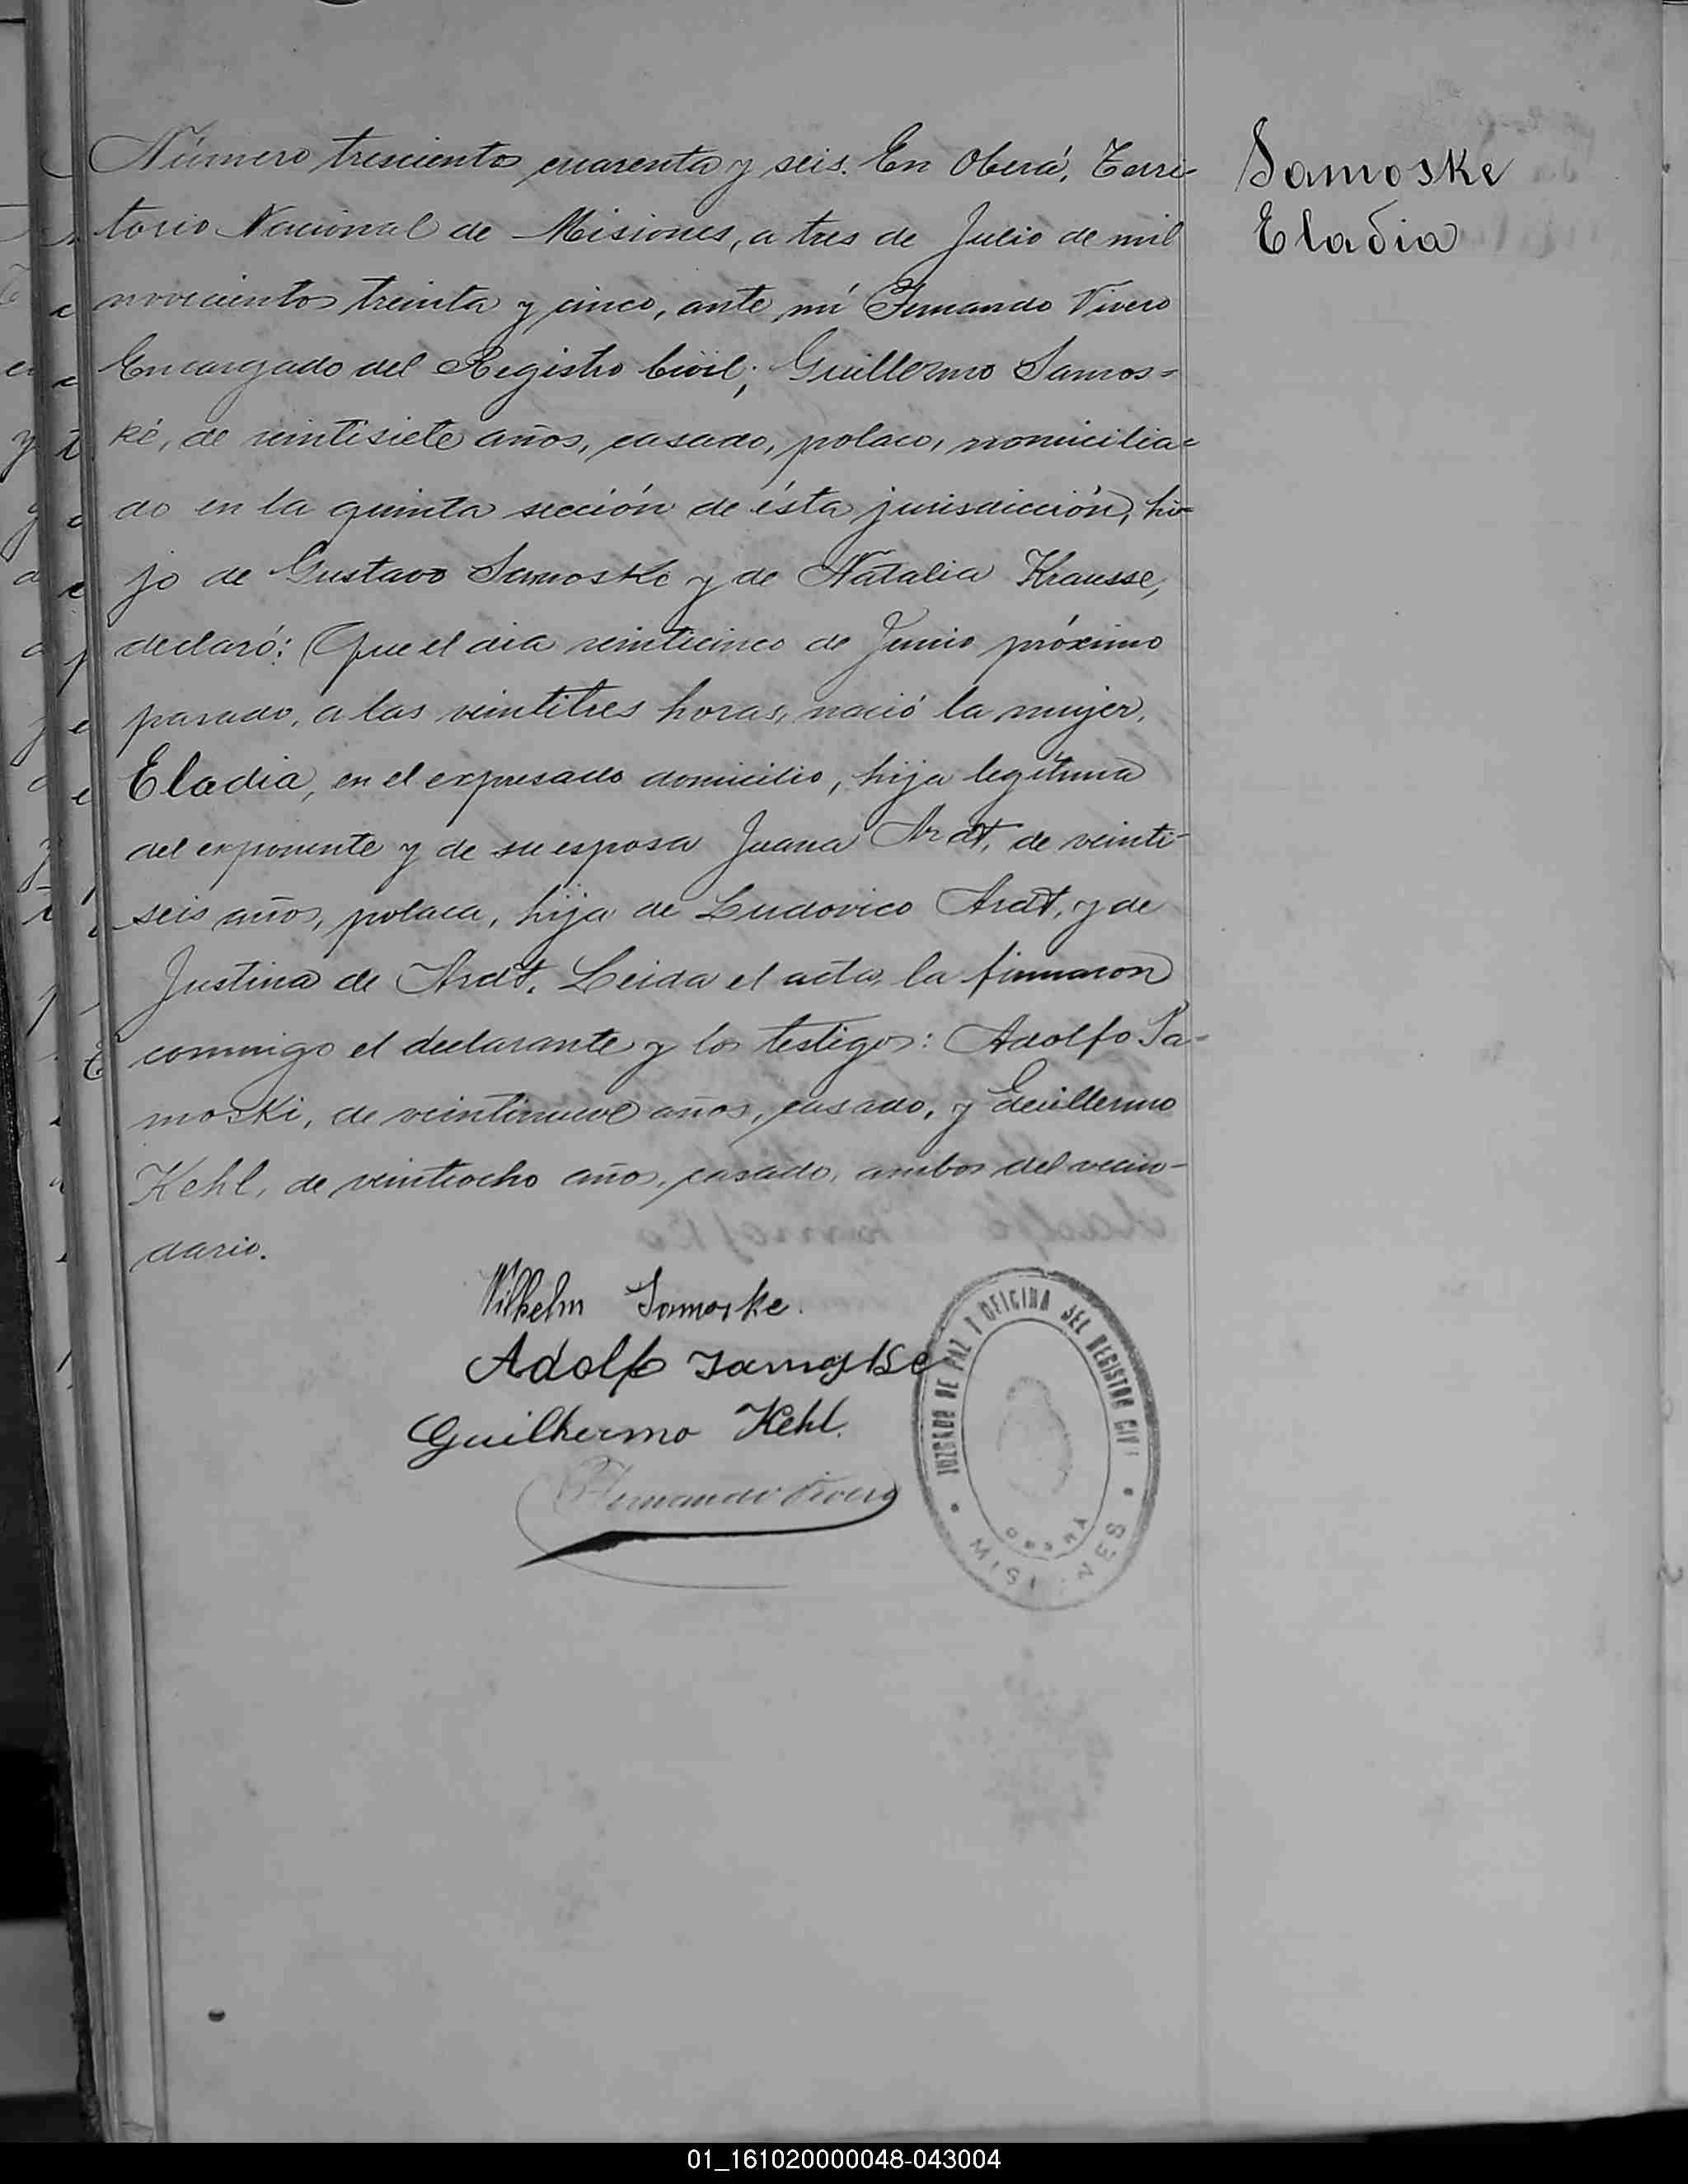 Número trescientos cuarenta y seis. En Oberá, Terri-
torio Nacional de Misiones, a tres de Julio de mil
novecientos treinta y cinco, ante mí Fernando Vivero
Encargado del Registro Civil; Guillermo Samos=
ke, de veintisiete años, casado, polaco, domicilia=
do en la quinta sección de ésta jurisdicción, hi=
jo de Gustavo Samoske y de Natalia Krausse,
declaró: Que el dia veinticinco de Junio próximo
pasado, a las veintitres horas, nació la mujer,
Eladia, en el expresado domicilio, hija legítima
del exponente y de su esposa Juana Ardt, de veinti-
seis años, polaca, hija de Ludovico Ardt, y de
Justina de Ardt. Leida el acta, la firmaron
conmigo el declarante y los testigos: Adolfo Sa-
moski, de veintinueve años, casado, y Guillermo
Kehl, de veintiocho años, casado, ambos del vecin-
dario.
Samoske
Eladia
Wilhelm Samoske.
Adolf Samoske
Guilhermo Kehl.
Fernando Vivero
JUZGADO DE PAZ Y OFICINA DEL REGISTRO CIVI
OBERÁ
MISIONES
01_161020000048-043004